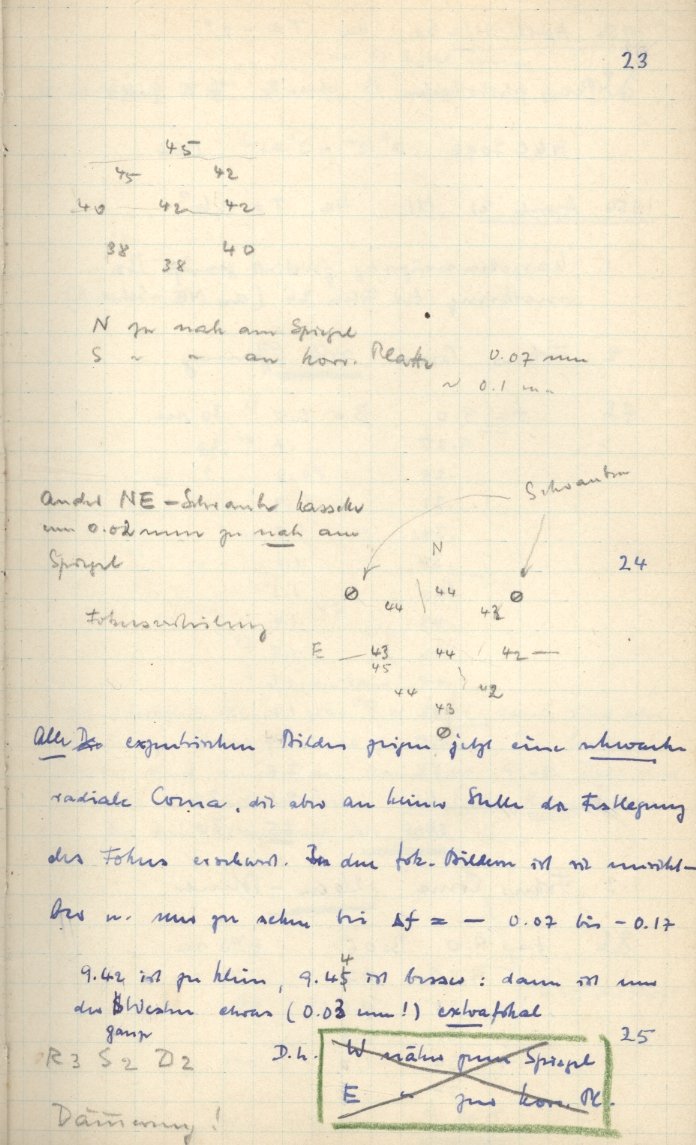 23
45
45 42
40 42 42
38 40
38
N zu nah am Spiegel
S " " an korr. Platte 0.07 mm
~ 0.1 mm
Schrauben
NE-Schraube Kassette
um 0.02 mm zu nah am
Spiegel
N
24
44 44 43
Fokusverteilung
E 43 44 42
45
44 42
43
Alle exzentrischen Bilder zeigen jetzt eine schwache
radiale Coma, die aber an keiner Stelle die Festlegung
des Fokus erschwert. In den fok. Bildern ist sie unsicht-
bar u. nur zu sehen bei Δf = - 0.07 bis - 0.17
9.42 ist zu klein, 9.44 ist besser: dann ist nur
der SWesten etwas (0.03 mm!) extrafokal
ganz
25
R3 S2 D2 D.h. W näher zum Spiegel
E " zur korr. Pl.
Dämmerung!